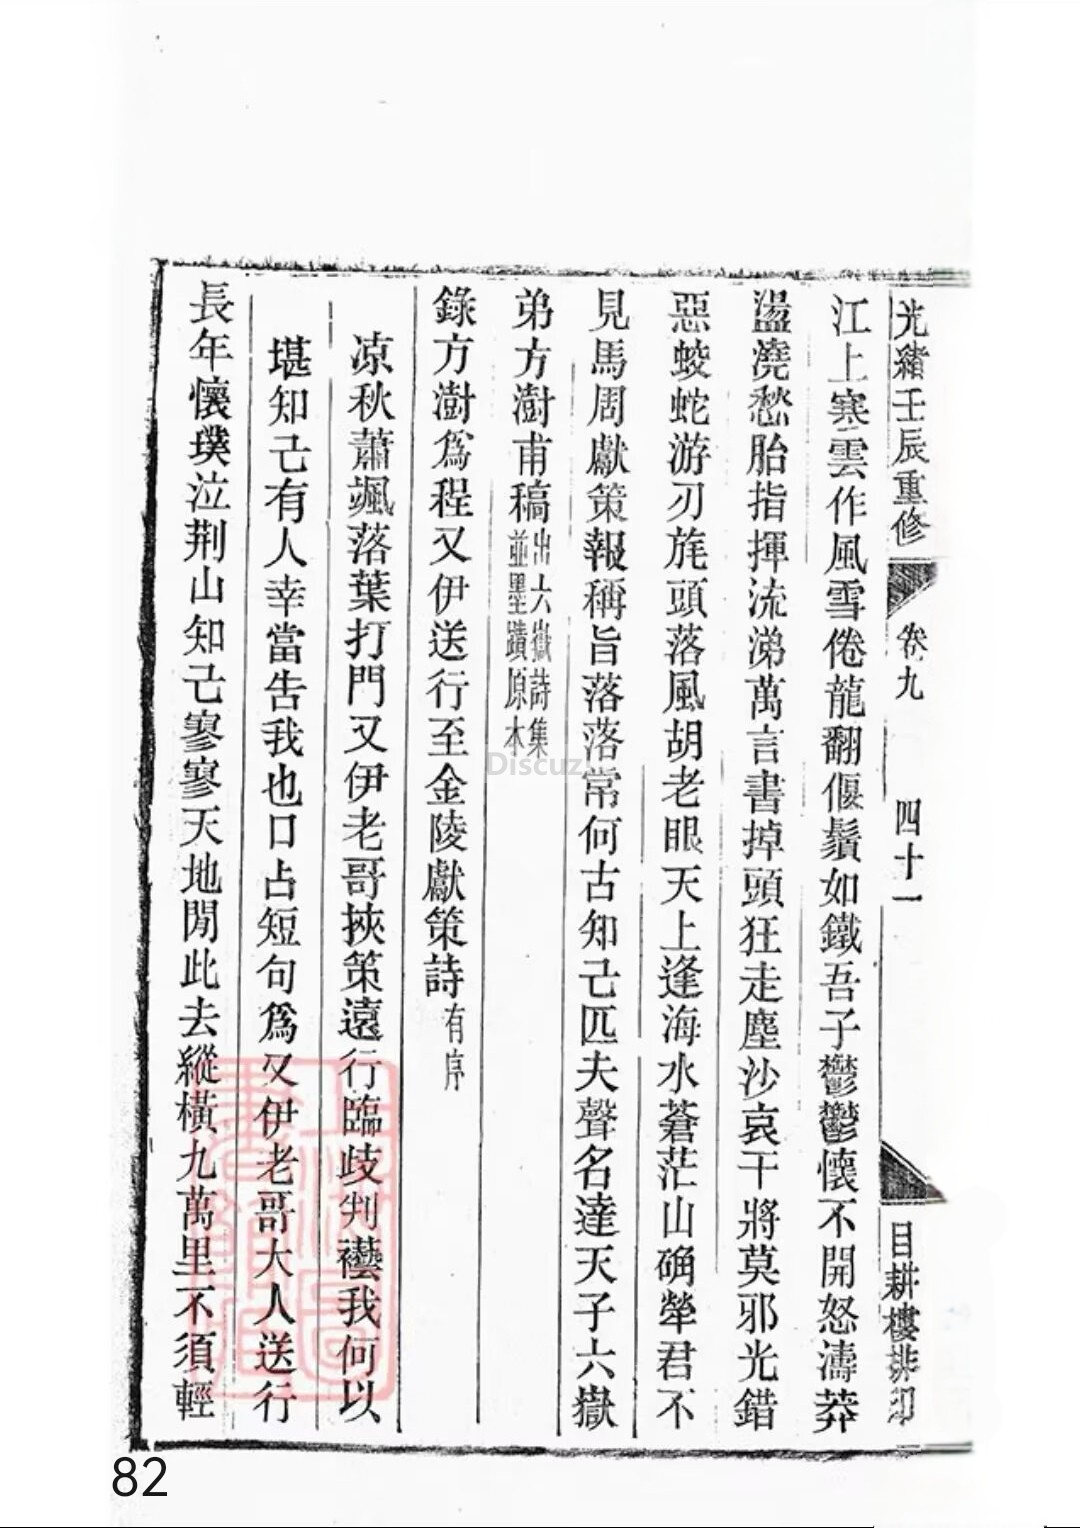 光緒壬辰重修
卷九
四十一
目耕樓排印
江上寒雲作風雪倦龍翻偃鬚如鐵吾子鬱鬱懷不開怒濤莽
盪澆愁胎指揮流涕萬言書掉頭狂走塵沙哀干將莫邪光錯
惡蛟蛇游刃旄頭落風胡老眼天上逢海水蒼茫山确犖君不
見馬周獻策報稱旨落落常何古知己匹夫聲名達天子六嶽
弟方澍甫稿出六嶽詩集
並墨蹟原本
錄方澍爲程又伊送行至金陵獻策詩有序
凉秋蕭颯落葉打門又伊老哥挾策遠行臨歧判襼我何以
堪知己有人幸當告我也口占短句爲又伊老哥大人送行
長年懷璞泣荆山知己寥寥天地閒此去縱橫九萬里不須輕
Discuz!
82